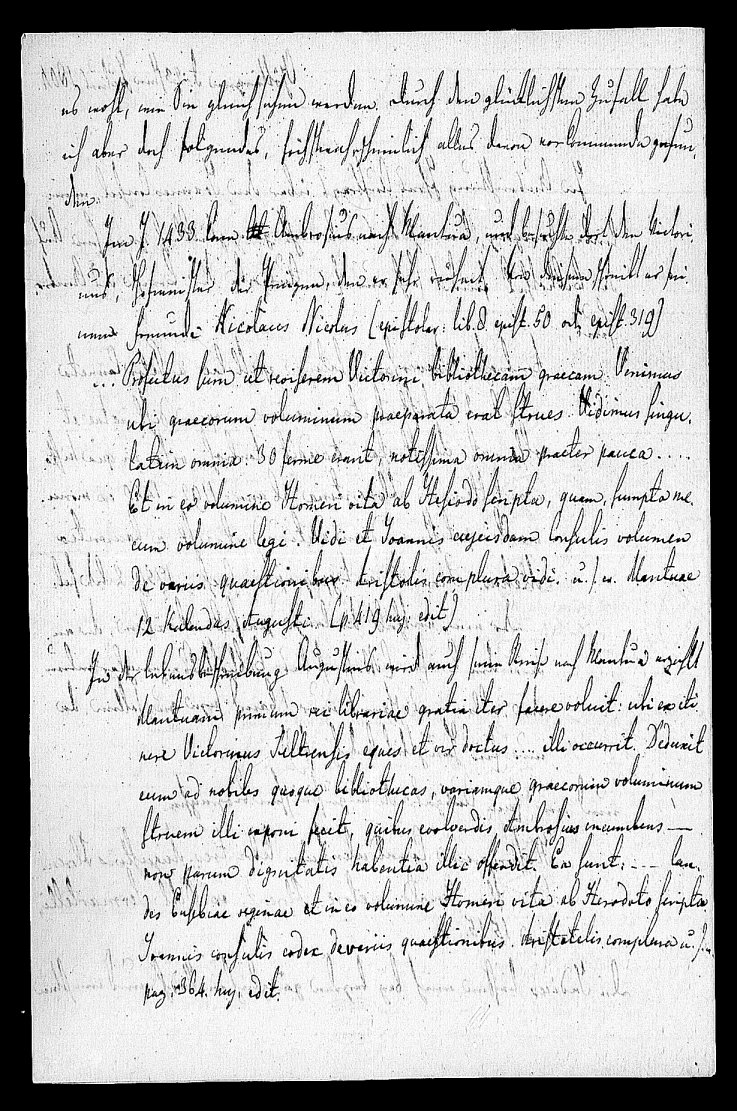 es wohl, wie Sie gleich sehen werden. Durch den glücklichsten Zufall habe
ich aber doch folgendes, höchstwahrscheinlich alles davon vorkommende gefun-
den.
Im J. 1433 kam Ambrosius nach Mantua, und besuchte dort den Victori
nus, Hofmeister der Prinzen, den er sehr rühmt. Von diesem schreibt er sei
nem Freunde Nicolaus Nicolus (epistolar: lib. 8 epist. 50 od. epist. 319)
... Profectus sum ut reviserem Victorini bibliothecam graecam. Venimus
ubi graecorum voluminum praeparata erat strues. Vidimus singu-
latim omnia: 30 ferme erant, notissima omnia praeter pauca....
Et in eo volumine Homeri vita ab Hesiodo scripta, quam, sumpto me-
cum volumine legi. Vidi et Joannis cujusdam Consulis volumen
de variis quaestionibus. Aristotelis complura vidi. u. s. w. Mantuae
12 Kalendas Augusti. (p. 419 huj. edit)
In der Lebensbeschreibung wird auch seine Reise nach Mantua erzählt
Mantuam primum rei librariae gratia iter facere voluit: ubi ex iti
nere Victorinus Feltrensis eques et vir doctus .... illi occurrit. Deduxit
eum ad nobiles quoque bibliothecas, variamque graecorum voluminum
struem illi exponi fecit, quibus evolvendis Ambrosius incumbens —
non parum dignitatis habentia illic offendit. Ea sunt: --- Lau-
des Eusebiae reginae et in eo volumine Homeri vita ab Herodoto scripta.
Joannis consulis codex de variis quaestionibus. Aristotelis complura u. s. w.
pag. 364. huj. edit.